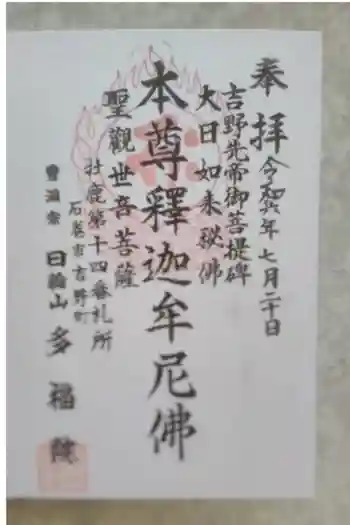 奉拝
令和六年七月二十日
吉野先帝御菩提碑
大日如来秘佛
本尊釋迦牟尼佛
聖觀世音菩薩
牡鹿第十四番札所
石巻市吉野町
曹洞宗 日輪山 多福院